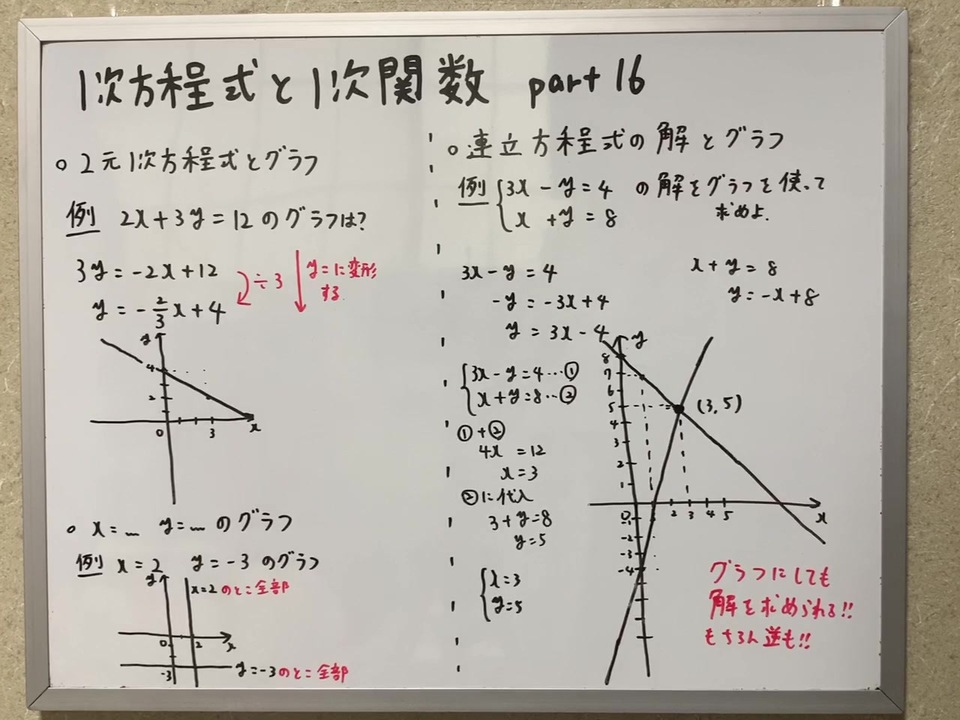 1次方程式と1次関数 part 16
○2元1次方程式とグラフ
例 2x+3y=12のグラフは?
3y=-2x+12
÷3
y=に変形
する
y=-2/3x+4
y
4
2
0
3
x
○x=… y=…のグラフ
例 x=2 y=-3のグラフ
y
x=2のとこ全部
0
2
x
-3
y=-3のとこ全部
○連立方程式の解とグラフ
例 {3x-y=4 の解をグラフを使って
x+y=8 求めよ.
3x-y=4
-y=-3x+4
y=3x-4
x+y=8
y=-x+8
{3x-y=4…①
x+y=8…②
①+②
4x=12
x=3
②に代入
3+y=8
y=5
{x=3
y=5
y
8
7
6
5
4
3
2
1
0
-1
-2
-3
-4
2 3 4 5
x
(3,5)
グラフにしても
解を求められる!!
もちろん逆も!!